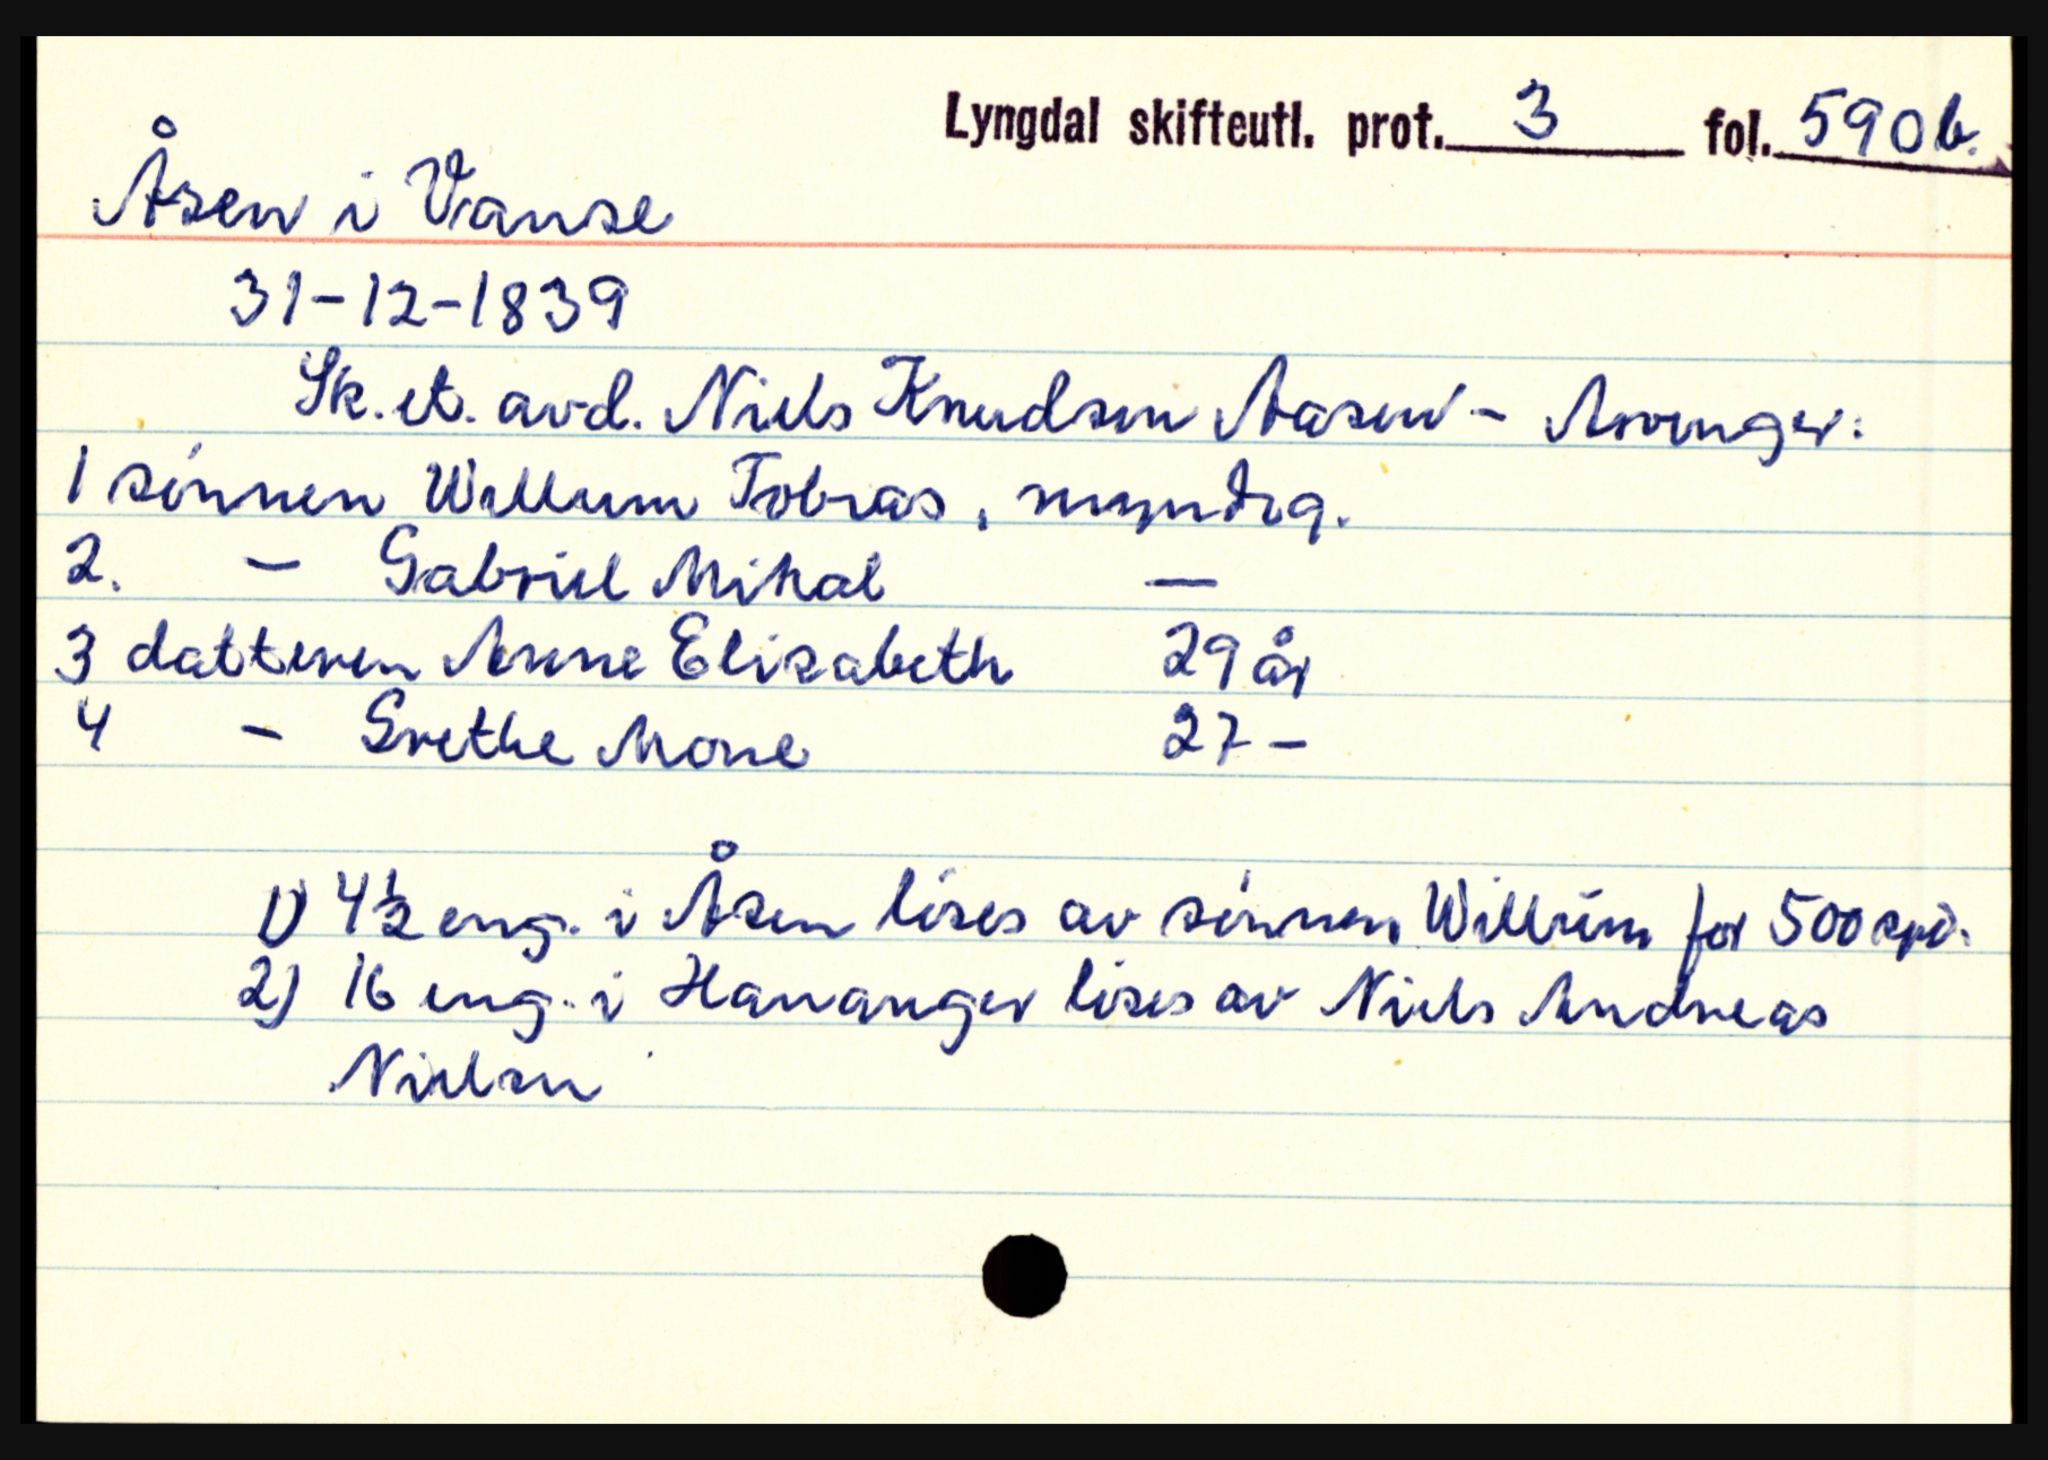 Lyngdal skifteutl. prot. 3 fol. 590b.
Åsen i Vanse
31-12-1839
Sk. et. avd. Niels Knudsen Aasen - Arvinger:
1 sönnen Willum Tobias, myndig.
2. - Gabriel Mikal -
3 datteren Anne Elisabeth 29 år
4 - Grethe Mone 27 -
1) 4½ eng. i Åsen löses av sönnen Willum for 500 spd.
2) 16 eng. i Hananger löses av Niels Andreas
Nielsen